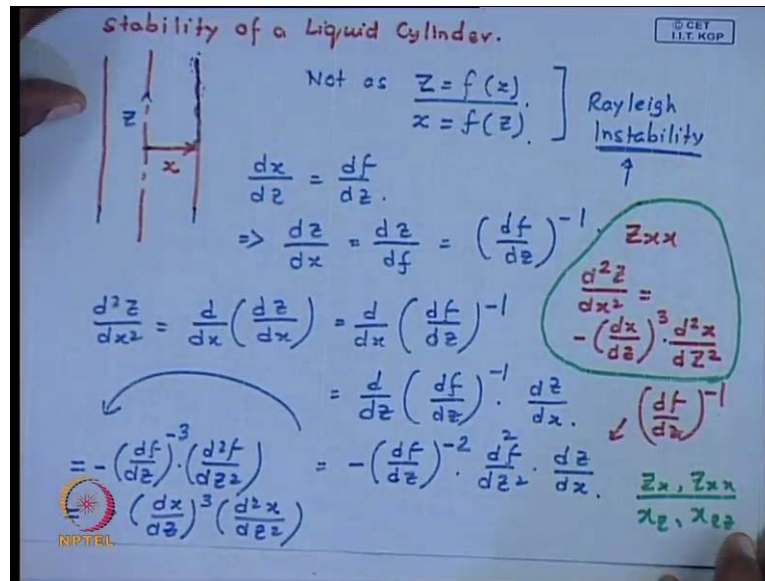 Stability of a Liquid Cylinder.
© CET
I.I.T. KGP
Not as z = f(x)
x = f(z).
] Rayleigh
Instability
z
x
dx/dz = df/dz.
=> dz/dx = dz/df = (df/dz)^-1.
Zxx
d²z/dx² =
-(dx/dz)^3 · d²x/dz²
d²z/dx² = d/dx (dz/dx) = d/dx (df/dz)^-1
= d/dz (df/dz)^-1 · dz/dx.
(df/dz)^-1
= -(df/dz)^-2 · d²f/dz² · dz/dx.
= -(df/dz)^-3 · (d²f/dz²)
= (dx/dz)^3 (d²x/dz²)
Zx, Zxx
xz, xzz
NPTEL